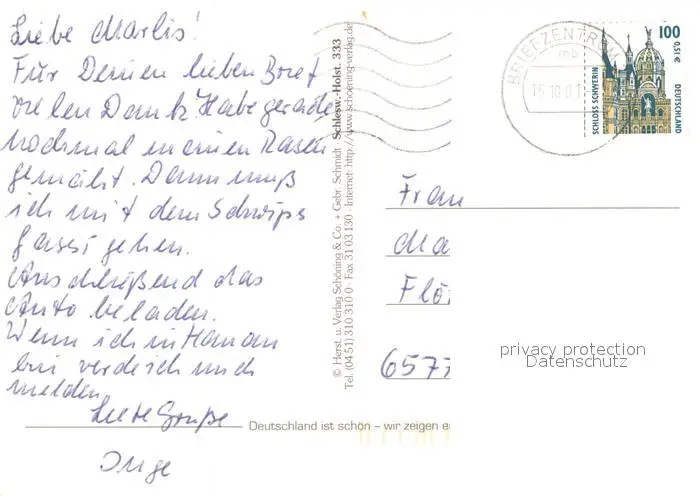 Liebe Marlis!
Für Deinen lieben Brief
vielen Dank. Habe gerade
nochmal meinen Rasen
gemäht. Dann muß
ich mit dem Schwips
Gassi gehen.
Anschließend das
Auto beladen.
Wenn ich in Hanau
bin werde ich mich
melden.
Liebe Grüße
Inge
© Herst. u. Verlag Schöning & Co. + Gebr. Schmidt · Schlesw.-Holst. 333
Tel. (04 51) 310 310 0 · Fax 31 03 130 · Internet: http://www.schoening-verlag.de
Deutschland ist schön – wir zeigen e
BRIEFZENTRUM
mb
15.10.01
100
0,51 €
SCHLOSS SCHWERIN
DEUTSCHLAND
Frau
Ma
Flö
6577
privacy protection
Datenschutz